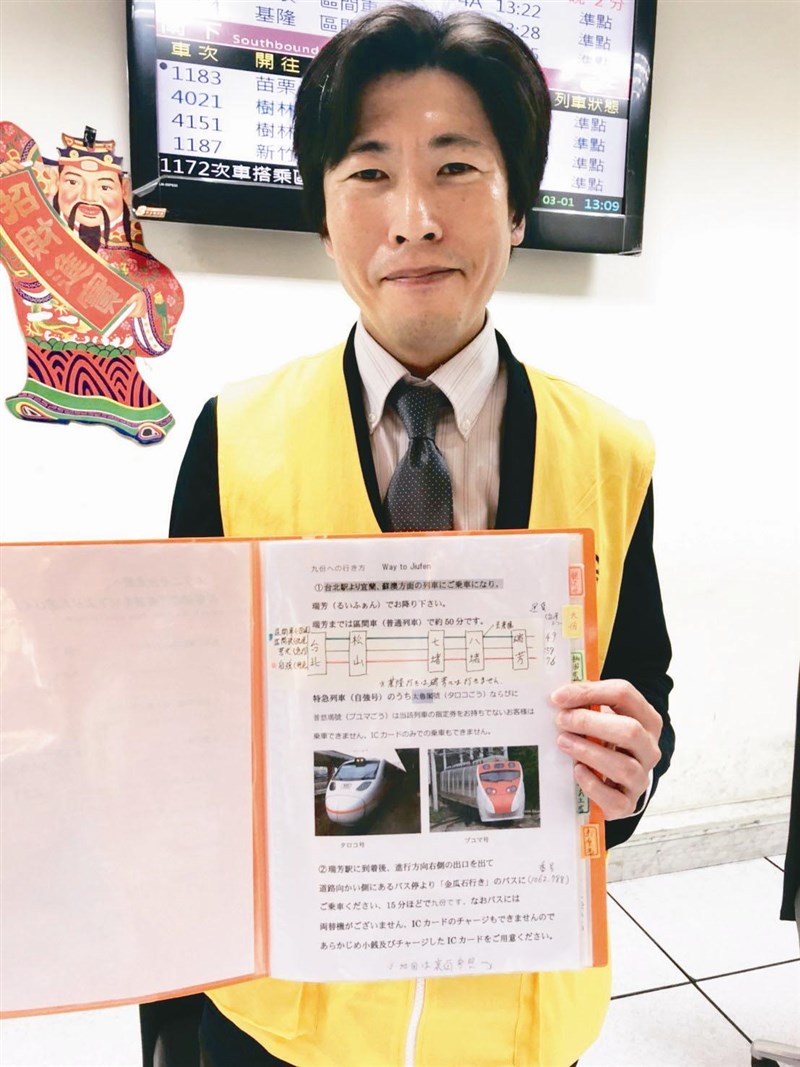 基隆
區間
13:22
準點
:28
準點
Southbound
車次 開往
列車狀態
1183 苗栗
準點
4021 樹林
準點
4151 樹林
準點
1187 新竹
準點
1172次車搭乘區
03-01 13:09
招財進寶
九份への行き方 Way to Jiufen
①台北駅より宜蘭、蘇澳方面の列車にご乗車になり、
瑞芳（るいふぁん）でお降り下さい。
瑞芳までは区間車（普通列車）で約50分です。
台北 松山 七堵 八堵 瑞芳
49
59
76
特急列車（自強号）のうち太魯閣號（タロコごう）ならびに
普悠瑪號（プユマごう）は当該列車の指定券をお持ちでないお客様は
乗車できません。ICカードのみでの乗車もできません。
タロコ号
プユマ号
②瑞芳駅に到着後、進行方向右側の出口を出て
道路向かい側にあるバス停より「金瓜石行き」のバスに(1062,788)
ご乗車ください、15分ほどで九份です。なおバスには
両替機がございません、ICカードのチャージもできませんので
あらかじめ小銭及びチャージしたICカードをご用意ください。
九份